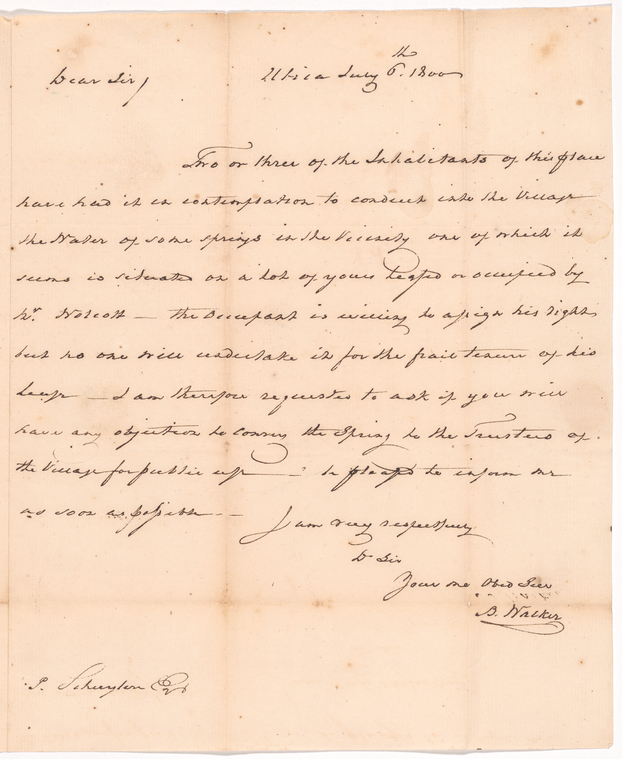 Dear Sir, Utica July 6th. 1800
Two or three of the Inhabitants of this place
have had it in contemplation to conduct into the Village
the Water of some springs in the Vicinity one of which it
seems is situated on a lot of yours leased or occupied by
Mr. Wolcott — the Occupant is willing to assign his right
but no one will undertake it for the frail tenure of his
Lease — I am therefore requested to ask if you will
have any objection to convey the Spring to the Trustees of
the Village for public use — be pleased to inform me
as soon as possible —
I am very respectfully
Dr Sir
Your Obed Ser
B. Walker
P. Schuyler Esqr